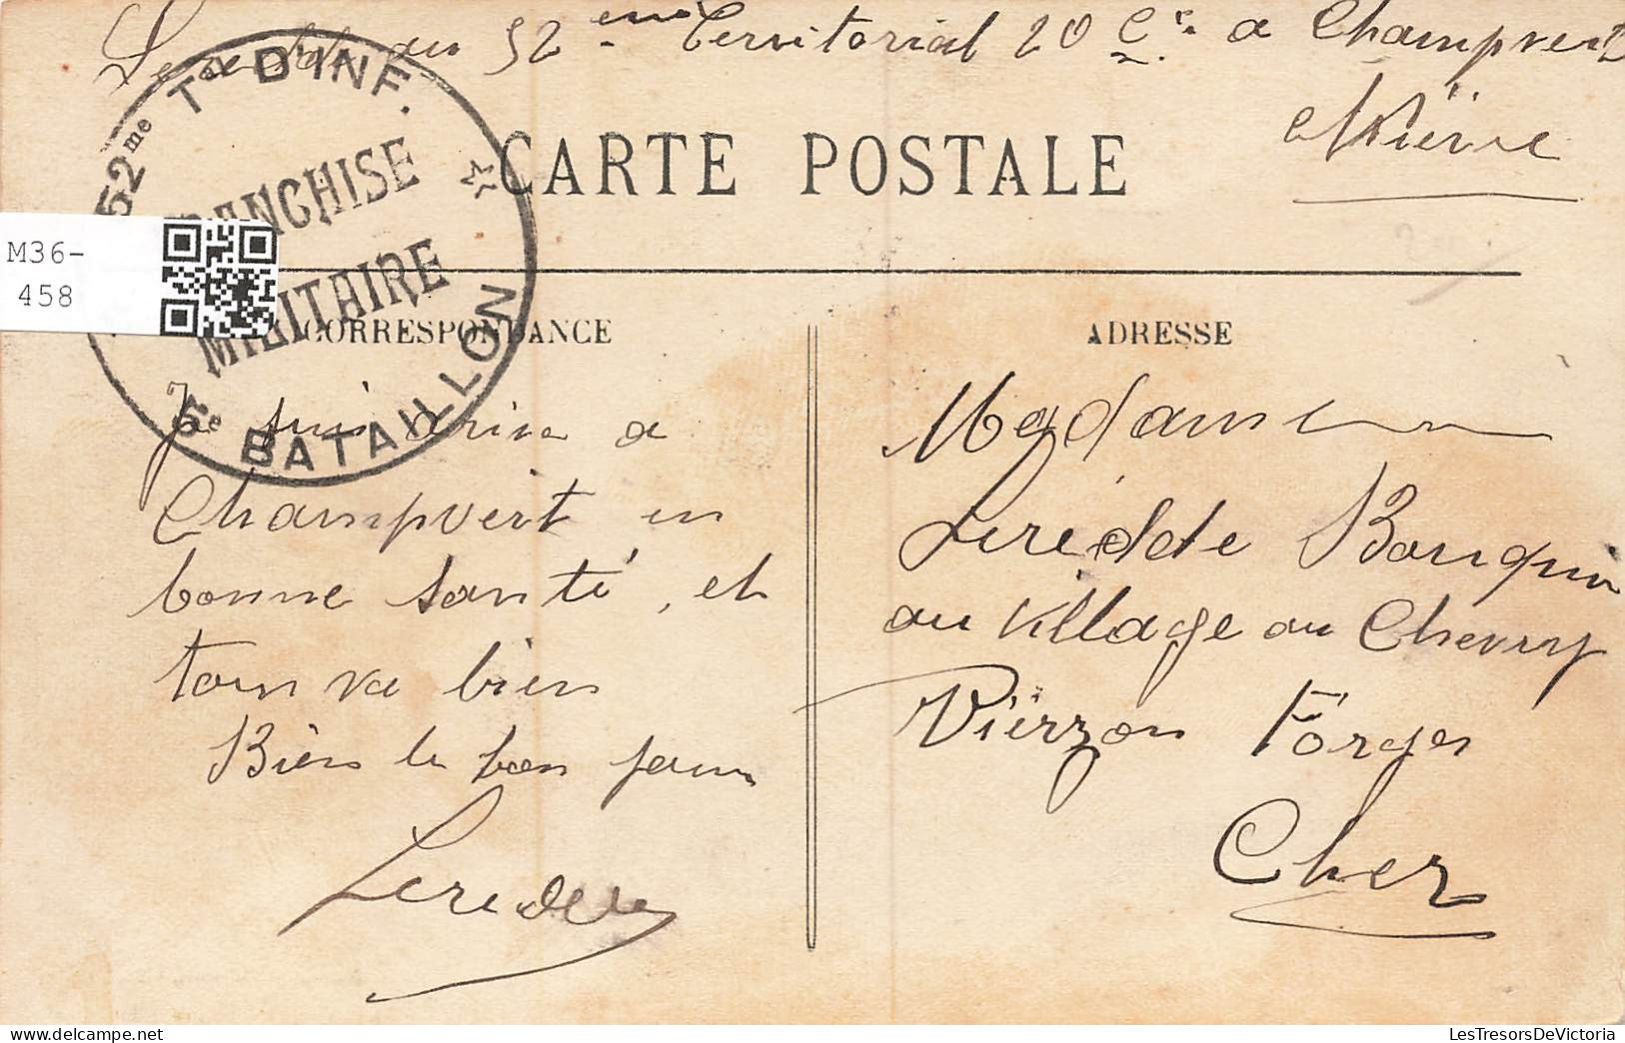 au 52 eme Territorial 20 Cie a Champvert
Nièvre
52me Tal D'INF.
FRANCHISE
MILITAIRE
5e BATAILLON
CARTE POSTALE
M36-
458
CORRESPONDANCE
ADRESSE
Je suis arive a
Champvert en
bonne santé, et
tous va bien
Bien le bon jour
Madame
Bouquin
au Village au Chevry
Vïerzon Forges
Cher
LesTresorsDeVictoria